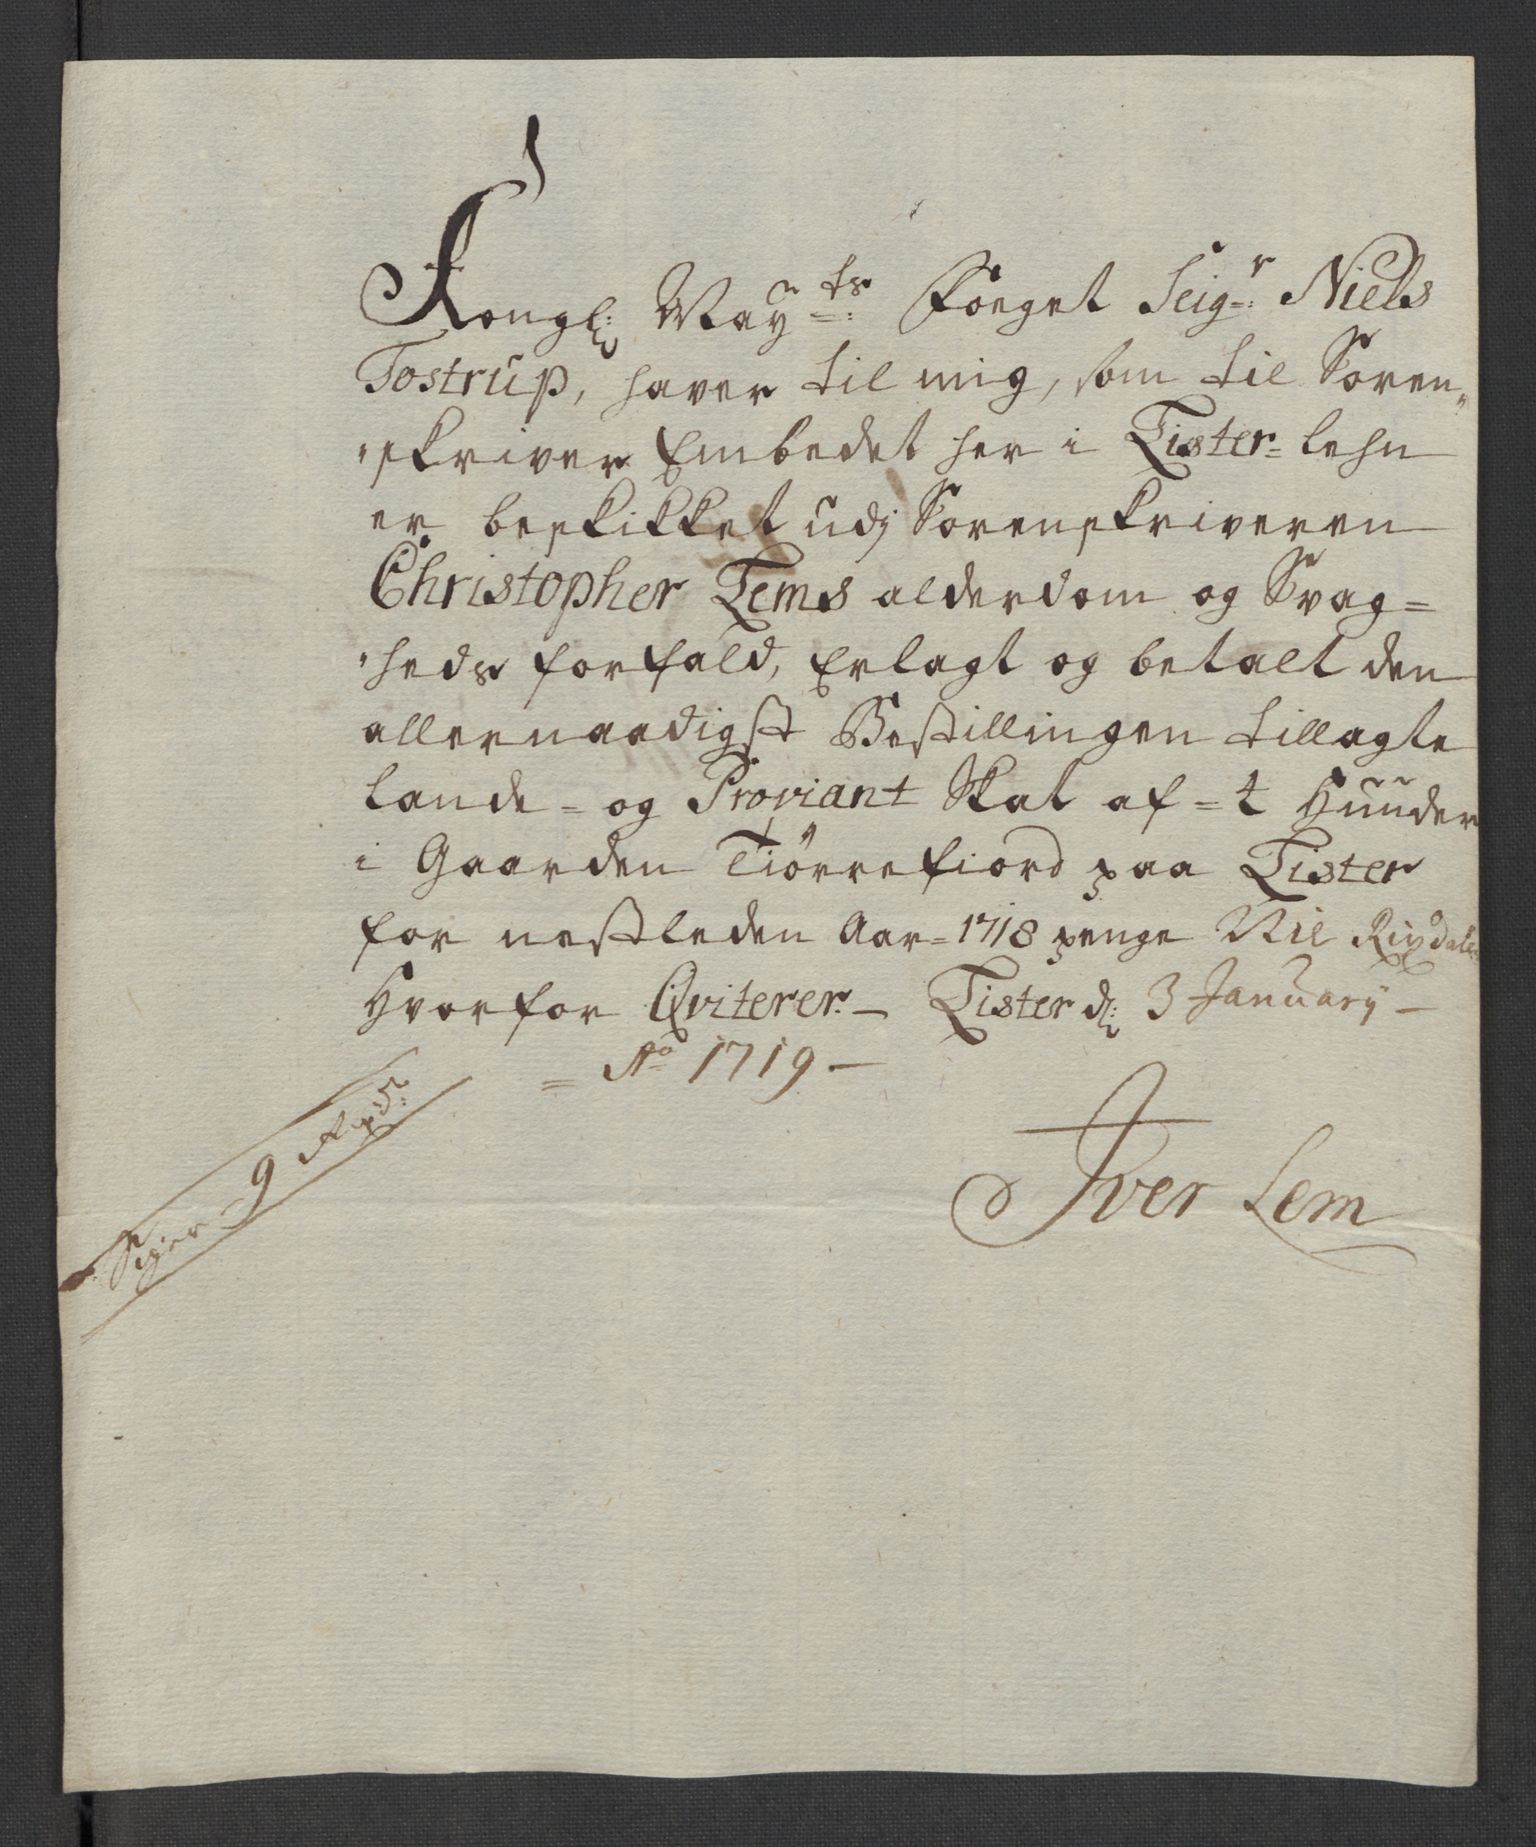 Kongl: May:ts Foeget Seig:r Niels
Tostrup, haver til mig, som til Soren„
„skriver Embedet her i Lister= lehn
er beskikket udj Sorenskriveren
Christopher Lems alderdom og Svag=
„heds forfald, Erlagt og betalt den
allernaadigst Bestillingen tillagte
Lande= og Proviant Skat af= t Huuder
i Gaarden Tiørrefiord paa Lister
for nestleden Aar= 1718 penge Nie Rixdaler
Hvorfor Qviterer.— Lister d: 3 January—
= Ao 1719—
Siger 9 Rd:
Iver Lem